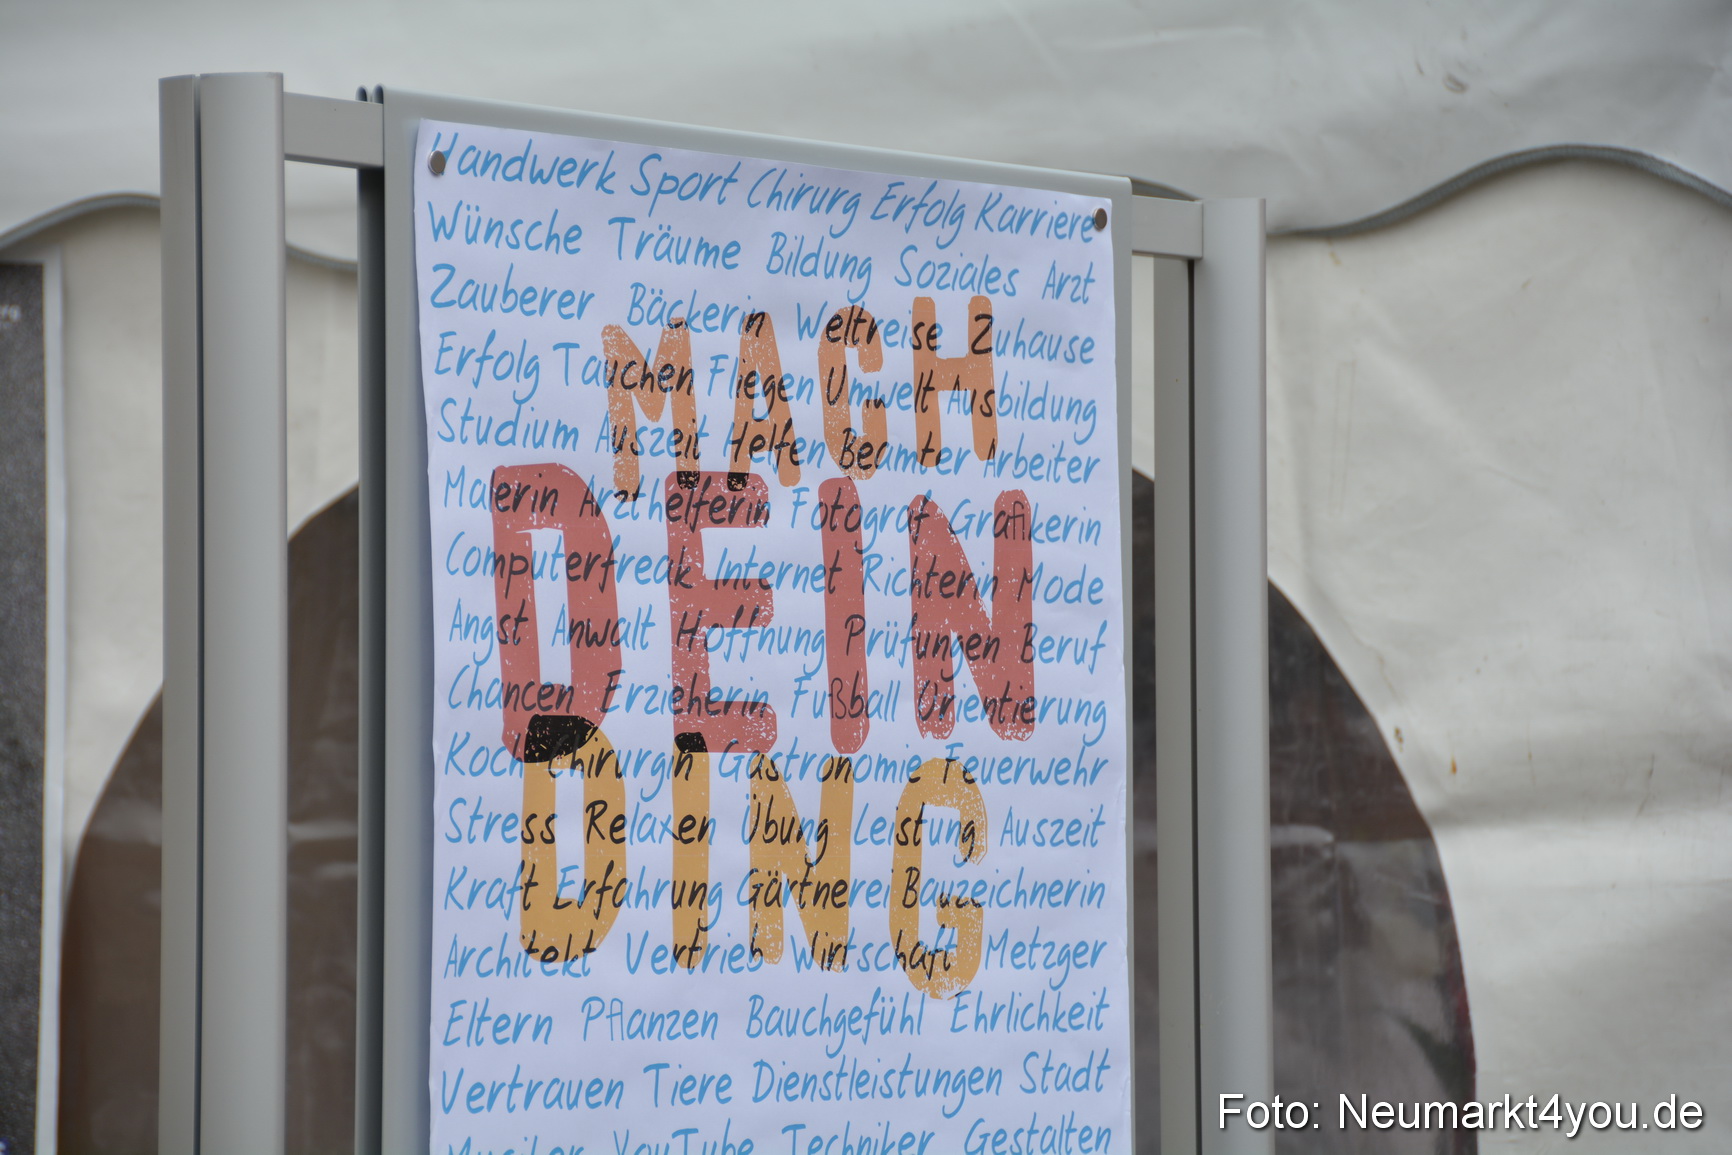 Handwerk Sport Chirurg Erfolg Karriere
Wünsche Träume Bildung Soziales Arzt
Zauberer Bäckerin Weltreise Zuhause
Erfolg Tauchen Fliegen Umwelt Ausbildung
Studium Auszeit Helfen Beamter Arbeiter
Malerin Arzthelferin Fotograf Grafikerin
Computerfreak Internet Richterin Mode
Angst Anwalt Hoffnung Prüfungen Beruf
Chancen Erzieherin Fußball Orientierung
Koch Chirurgin Gastronomie Feuerwehr
Stress Relaxen Übung Leistung Auszeit
Kraft Erfahrung Gärtnerei Bauzeichnerin
Architekt Vertrieb Wirtschaft Metzger
Eltern Pflanzen Bauchgefühl Ehrlichkeit
Vertrauen Tiere Dienstleistungen Stadt
Musiker YouTube Techniker Gestalten
MACH
DEIN
DING
Foto: Neumarkt4you.de